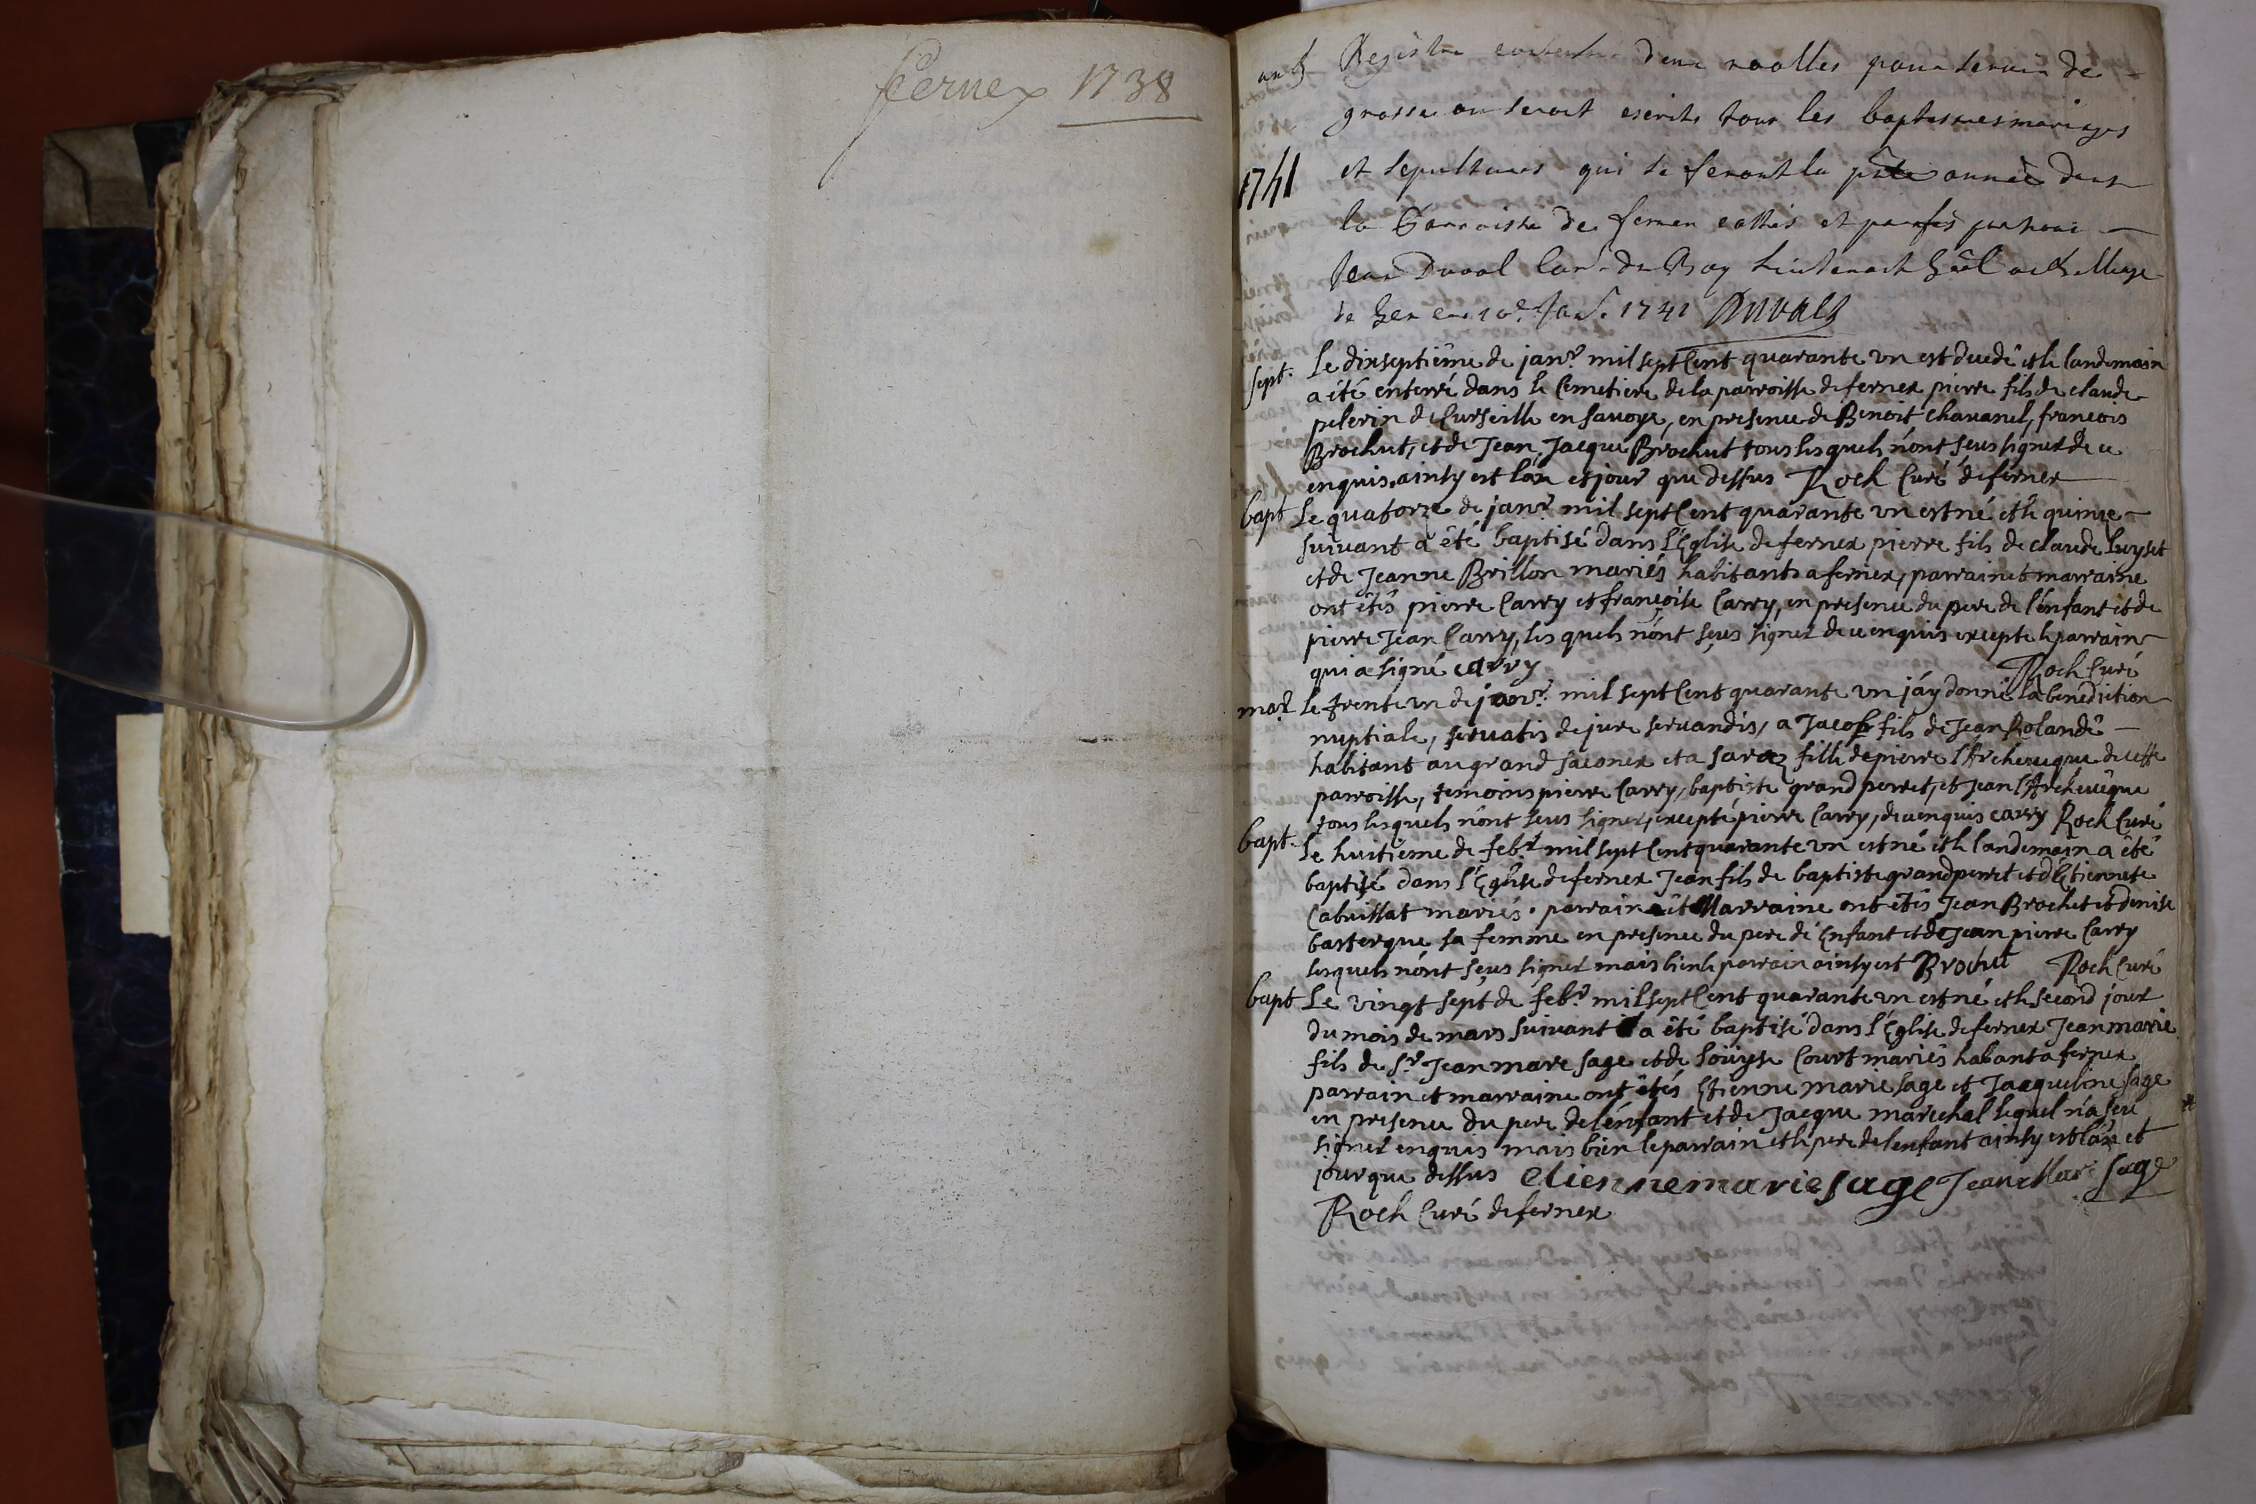 fernex 1738
Registre contenant deux roolles pour servir de
grosse ou seront escrits tous les baptesmes mariages
1741
et sepultures qui se feront la pnte année dans
la Parroisse de fernex cottés et parafés par nous
Jean Duval Con. du Roy Lieutenant gnãl au Bailliage
de Gex ce 10e Janv. 1741 Duval
sept. Le dixseptiême de janr. mil sept Cent quarante un est decedé et le landemain
a été enterré dans le Cemetiere de la parroisse de fernex pierre fils de claude
pelerin de Curseille en savoye, en presence de Benoit chavanel, francois
Brochut, et de Jean Jacque Brochut tous lesquels n'ont seus signer de ce
enquis. ainsy est l'an et jour que dessus Roch Curé de fernex
bapt Le quatorze de janr. mil sept Cent quarante un est né et le quinze
suivant a été baptisé dans l'Eglise de fernex pierre fils de claude Luyset
et de Jeanne Brillon mariés habitants a fernex, parrain et marraine
ont étés pierre Carry et françoise Carry, en presence du pere de l'enfant et de
pierre Jean Carry, lesquels n'ont seus signer de ce enquis excepte le parrain
qui a signé carry Roch Curé
mar. Le trente un de janr. mil sept Cent quarante un j'ay donné la benediction
nuptiale, servatis de jure servandis, a Jacob fils de Jean Rolandé
habitant au grand saconex et a sara fille de pierre l'Archeveque de cette
parroisse, temoins pierre Carry, baptiste grand perret, et Jean l'Archevêque
tous lesquels n'ont seus signer, excepté pierre Carry, de ce enquis carry Roch Curé
bapt. Le huitieme de febr. mil sept Cent quarante un est né et le landemain a été
baptisé dans l'Eglise de fernex Jean fils de baptiste grandperret et d'Etiennete
Cabuissat mariés. parrain et Marraine ont étés Jean Brochet et denise
basterque sa femme en presence du pere de Enfant et de Jean pierre Carry
lesquels n'ont seus signer mais bien le parrain ainsy est Brochut Roch Curé
bapt Le vingt sept de febr. mil sept Cent quarante un est né et le second jour
du mois de mars suivant a été baptisé dans l'Eglise de fernex Jean marie
fils de Sr. Jean marc sage et de Loüyse Court mariés habant a fernex
parrain et marraine ont étés Etienne marie sage et Jacqueline sage
en presence du pere de l'enfant et de Jacque marechal lequel n'a seu
signer enquis mais bien le parrain et le pere de l'enfant ainsy est l'an et
jour que dessus etiennemariesage Jean Marc Sage
Roch Curé de fernex